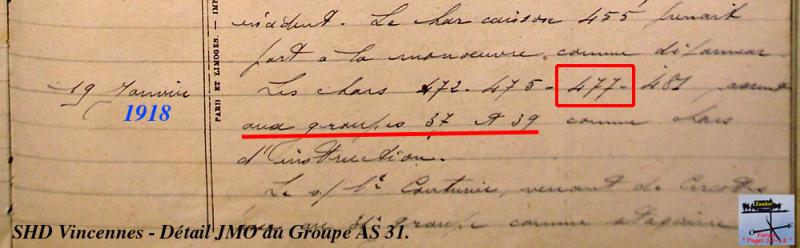 incident. Le char caisson 455 prenait
part à la manoeuvre comme dépanneur
19 Janvier Les chars 472 - 475 - 477 - 481 passent
1918
aux groupes 37 et 39 comme chars
d'instruction.
Le s/Lt venant de Cercottes
groupe comme stagiaire
PARIS ET LIMOGES. — IMP
SHD Vincennes - Détail JMO du Groupe AS 31.